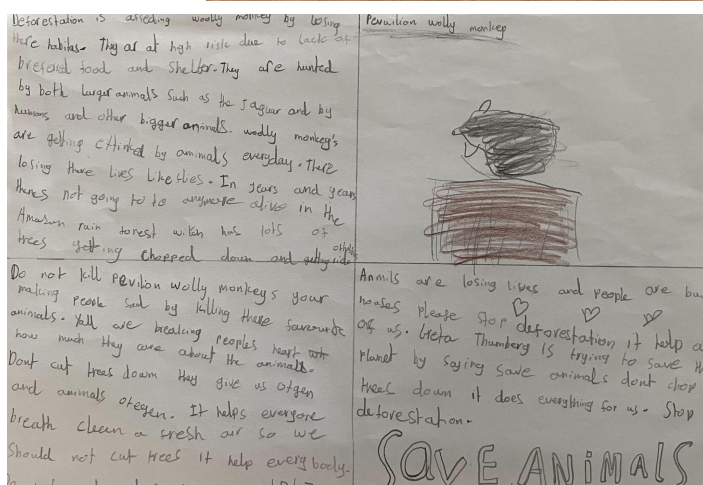 Deforestation is affeding woolly monkey by losing
there habitas. They ar at high risk due to lack of
prefeud food and shelter. They are hunted
by both larger animals such as the Jaguar and by
humans and other bigger animals. woolly monkey's
are getting by animals everyday. There
losing there lives like flies. In years and years
theres not going to to anymore alive in the
Amazon rain forest witch has lots of
trees getting chopped down and getting
Peruvilion wolly monkey
Do not kill Pevilon wolly monkeys your
making people sad by killing there favourite
animals. Yall are breaking peoples heart
how much they care about the animals.
Dont cut trees down they give us
and animals . It helps everyone
breath cleen a fresh air so we
should not cut trees it help everybody.
Anmils are losing lives and people are
houses please stop deforestation it help
of us. Greta Thumberg is trying to save
planet by saying save animals dont chop
trees down it does everything for us. Stop
deforestation.
SAVE ANIMALS